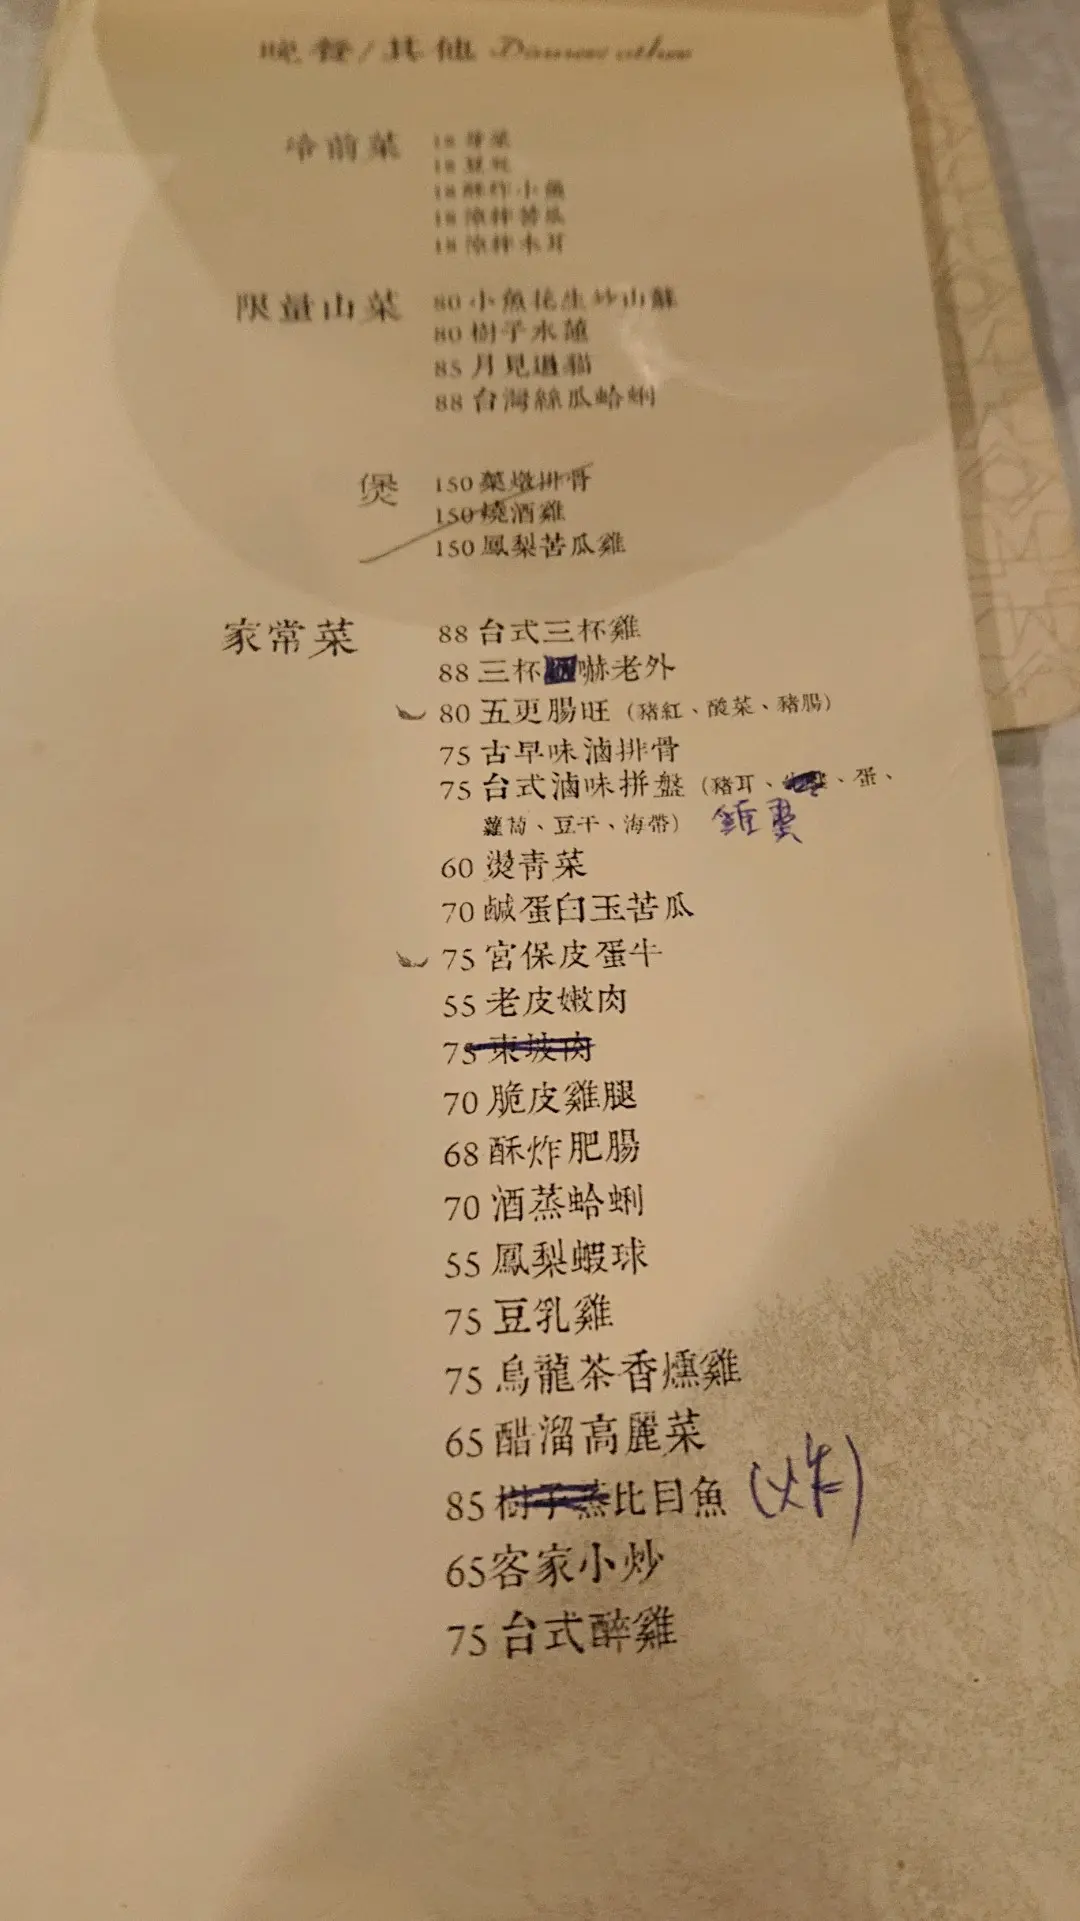 晚餐/其他 Dinner other
冷前菜
18 芽菜
18 豆乾
18 酥炸小魚
18 涼拌苦瓜
18 涼拌木耳
限量山菜
80 小魚花生炒山蘇
80 樹子水蓮
85 月見過貓
88 台灣絲瓜蛤蜊
煲
150 藥燉排骨
150 燒酒雞
150 鳳梨苦瓜雞
家常菜
88 台式三杯雞
88 三杯嚇老外
80 五更腸旺（豬紅、酸菜、豬腸）
75 古早味滷排骨
75 台式滷味拼盤（豬耳、蛋、
蘿蔔、豆干、海帶）
60 燙青菜
70 鹹蛋白玉苦瓜
75 宮保皮蛋牛
55 老皮嫩肉
75 東坡肉
70 脆皮雞腿
68 酥炸肥腸
70 酒蒸蛤蜊
55 鳳梨蝦球
75 豆乳雞
75 烏龍茶香燻雞
65 醋溜高麗菜
85 樹子蒸比目魚 (炸)
65 客家小炒
75 台式醉雞